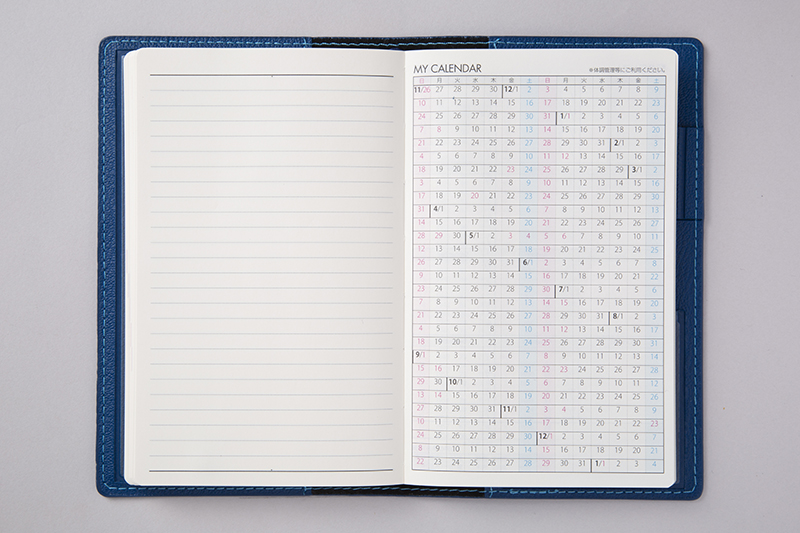 MY CALENDAR
※体調管理等にご利用ください。
日 月 火 水 木 金 土 日 月 火 水 木 金 土
11/26 27 28 29 30 12/1 2 3 4 5 6 7 8 9
10 11 12 13 14 15 16 17 18 19 20 21 22 23
24 25 26 27 28 29 30 31 1/1 2 3 4 5 6
7 8 9 10 11 12 13 14 15 16 17 18 19 20
21 22 23 24 25 26 27 28 29 30 31 2/1 2 3
4 5 6 7 8 9 10 11 12 13 14 15 16 17
18 19 20 21 22 23 24 25 26 27 28 29 3/1 2
3 4 5 6 7 8 9 10 11 12 13 14 15 16
17 18 19 20 21 22 23 24 25 26 27 28 29 30
31 4/1 2 3 4 5 6 7 8 9 10 11 12 13
14 15 16 17 18 19 20 21 22 23 24 25 26 27
28 29 30 5/1 2 3 4 5 6 7 8 9 10 11
12 13 14 15 16 17 18 19 20 21 22 23 24 25
26 27 28 29 30 31 6/1 2 3 4 5 6 7 8
9 10 11 12 13 14 15 16 17 18 19 20 21 22
23 24 25 26 27 28 29 30 7/1 2 3 4 5 6
7 8 9 10 11 12 13 14 15 16 17 18 19 20
21 22 23 24 25 26 27 28 29 30 31 8/1 2 3
4 5 6 7 8 9 10 11 12 13 14 15 16 17
18 19 20 21 22 23 24 25 26 27 28 29 30 31
9/1 2 3 4 5 6 7 8 9 10 11 12 13 14
15 16 17 18 19 20 21 22 23 24 25 26 27 28
29 30 10/1 2 3 4 5 6 7 8 9 10 11 12
13 14 15 16 17 18 19 20 21 22 23 24 25 26
27 28 29 30 31 11/1 2 3 4 5 6 7 8 9
10 11 12 13 14 15 16 17 18 19 20 21 22 23
24 25 26 27 28 29 30 12/1 2 3 4 5 6 7
8 9 10 11 12 13 14 15 16 17 18 19 20 21
22 23 24 25 26 27 28 29 30 31 1/1 2 3 4